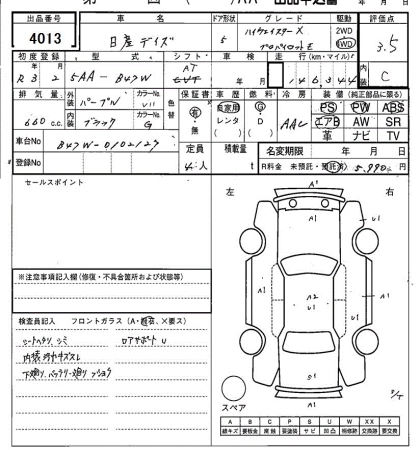 出品番号 車名 ドア形状 グレード 駆動 評価点
4013 日産デイズ 5 ハイウェイスターX プロパイロットE 2WD 4WD 3.5
初度登録 型式 シフト 車検 走行(km・マイル) 内装
R3年2月 5AA-B47W AT CVT 年 月 146,344 C
排気量 外装 パープル カラーNo. 色替 保証書 車歴 燃料 冷房 装備(純正部品に限る)
660c.c. 内装 ブラック カラーNo. G 有 無 自家用 レンタ ( ) G D ( ) AAC PS PW ABS
エアB AW SR
革 ナビ TV
車台No B47W-0102127 定員 積載量 名変期限 年 月 日
登録No 4人 t R料金 未預託・預託済 5,990円
セールスポイント
左 右
A1
A1 U1
A1 A2 U1 A1
S1
A1
スペア
※注意事項記入欄(修復・不具合箇所および状態等)
検査員記入 フロントガラス(A・飛石、×要ス)
シートヘタリ、シミ ロアサポートU
内装汚れキズスレ
下廻リ、バッテリー廻リサビ
A B C P S U W XX X
線キズ 要板金 腐蝕 要塗装 サビ 凹凸 補修跡 交換跡 要交換